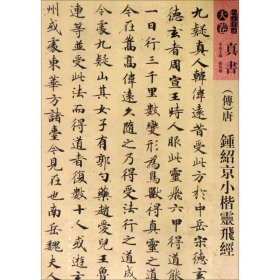 大卷
真書
(傳)唐
鍾紹京小楷靈飛經
九疑真人韓偉遠昔受於中岳宋德玄
德玄者周宣王時人服此靈飛六甲得道能
一日行三千里數變形為鳥獸得真靈之道
今處嵩高偉遠久隨之乃得受法行之道成
今處九疑山其女子有郭勺藥趙愛兒王魯
連等並受此法而得道者復數十人或遊玄
洲或處東華方諸臺今見在也南岳魏夫人